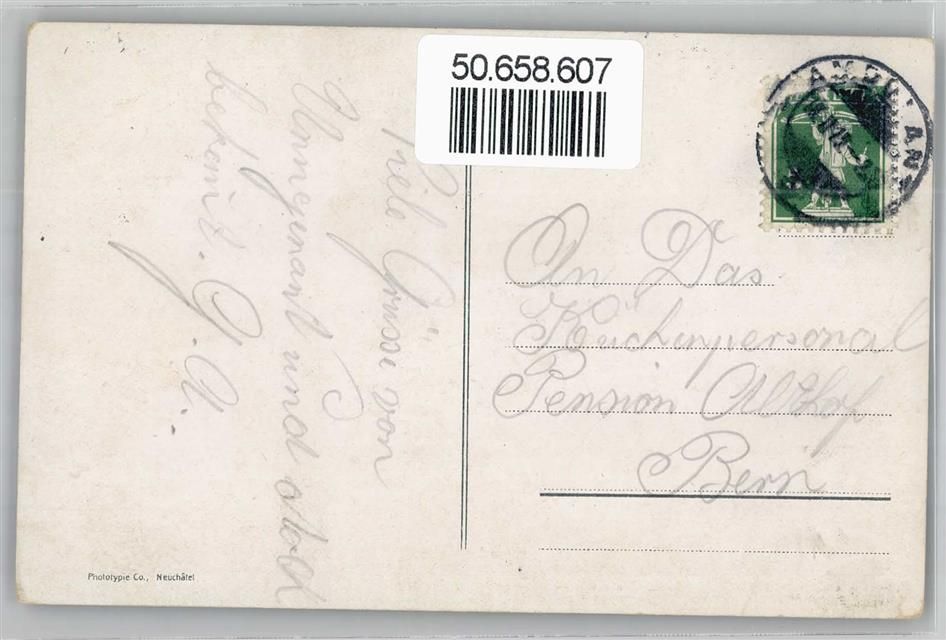 50.658.607
Viele Grüsse von
Ungenannt und doch
bekannt. G. A.
An Das
Küchenpersonal
Pension Althof
Bern
Phototypie Co., Neuchâtel